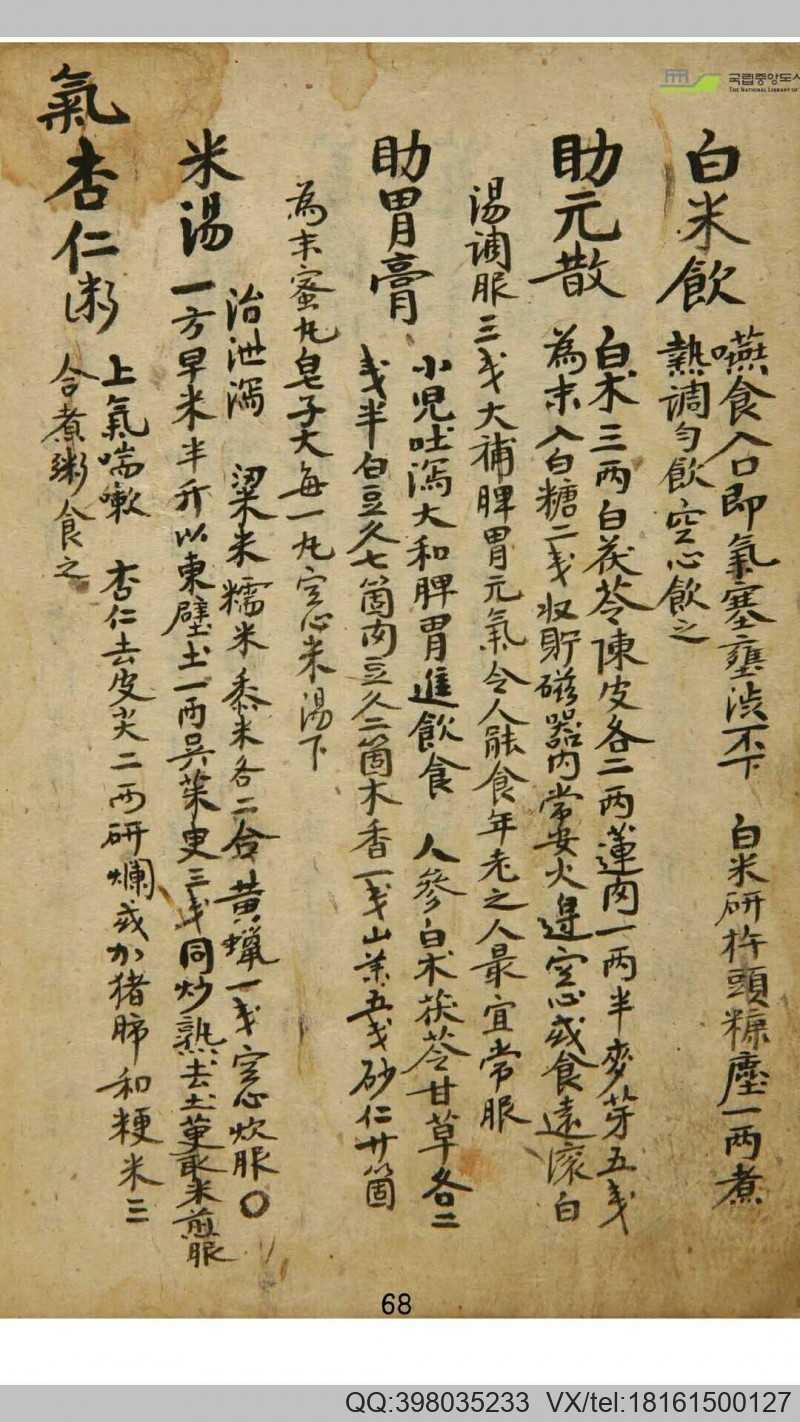 国립중앙도서
THE NATIONAL LIBRARY OF
白米飲 嚥食入口即氣塞壅澁不下 白米研杵頭糠塵一兩煮
熱調勻飲空心飲之
助元散 白朮三兩白茯苓陳皮各二兩蓮肉一兩半麥芽五戔
為末入白糖二戔收貯磁器內常安火邊空心或食遠滾白
湯調服三戔大補脾胃元氣令人能食年老之人最宜常服
助胃膏 小児吐瀉大和脾胃進飲食 人參白朮茯苓甘草各二
戔半白豆久七箇肉豆久二箇木香一戔山藥五戔砂仁廿箇
為末蜜丸皂子大每一丸空心米湯下
米湯 治泄瀉 粱米糯米黍米各二合黃蠟一戔空心炊服〇
一方早米半升以東壁土一兩吳茱萸三戔同炒熟去土萸取米煎服
氣 杏仁粥 上氣喘嗽 杏仁去皮尖二兩研爛或加猪肺和粳米三
合煮粥食之
68
QQ:398035233 VX/tel:18161500127